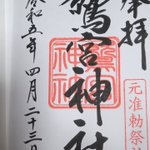 奉拝
元准勅祭
鷲宮神社
令和五年四月二十三日